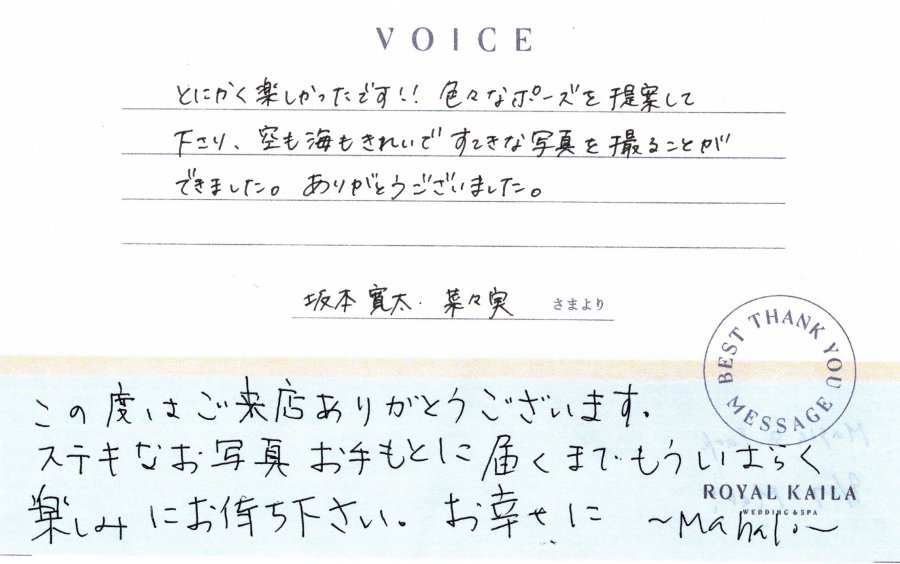 VOICE
とにかく楽しかったです!! 色々なポーズを提案して
下さり、空も海もきれいですてきな写真を撮ることが
できました。ありがとうございました。
坂本 寛太・菜々実 さまより
BEST THANK YOU MESSAGE
この度はご来店ありがとうございます。
ステキなお写真 お手もとに届くまで もうしばらく
楽しみにお待ち下さい。お幸せに ~Mahalo~
ROYAL KAILA
WEDDING & SPA